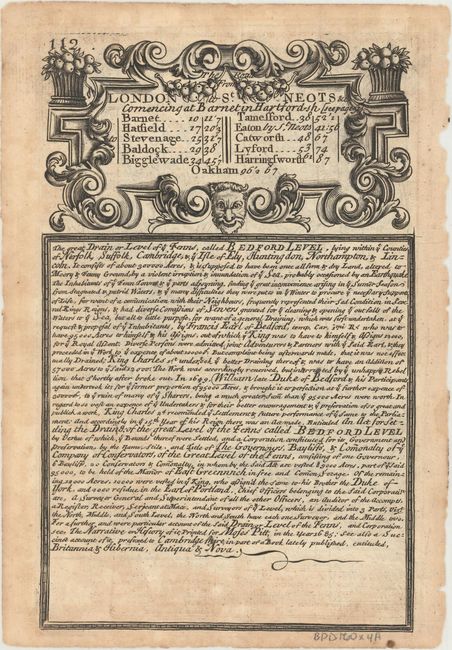 112
The Road
From
LONDON to St. NEOTS &c
Comencing at Barnet in Hartford-sh. see page
Barnet 10 11'7
Hatfield 17 20'2
Stevenage 25 31'7
Baldock 29 38
Bigglewade 34 45'1
Tamesford 38 52'1
Eaton by St. Neots 41 56
Catworth 48 67
Lyford 53 74
Harringsworth 87
Oakham 96'2 67
The great Drain or Level of ye Fenns, called BEDFORD LEVEL, lying within ye Counties
of Norfolk, Suffolk, Cambridge, wth ye Isle of Ely, Huntingdon, Northampton, & Lin-
coln. It consists of about 300000 Acres, & is supposed to have been once all firm & dry Land, altered to
Moory & Fenny Ground, by a violent irruption & inundation of ye Sea, probably occasioned by an Earthquake
The Inhabitants of ye Fenns & parts adjoyning, finding ye great inconvenience arising in ye Sumer Season
from stagnated & putrid Waters, & ye many difficulties they were put to in ye Winter to procure ye necessary support
of life, for want of a comunication with their Neighbours, frequently represented their Sad Condition, in Seve-
ral Kings Reigns, & had diverse Comissions of Sewers granted for ye cleansing & opening ye out falls of the
Waters to ye Sea, but all to little purpose, for want of a general Draining, which was first undertaken, at ye
request & proposal of ye Inhabitants, by Francis Earl of Bedford, temp. Car. who was to
have 95000 Acres to himself & his assigns, out of which ye King was to have to himself & assigns 12000,
for ye Royal assent. Diverse Persons were admitted joint Adventurers & Partners with ye Said Earl, & they
proceeded in ye Work to ye expense of about 100000 £. But complaint being afterwards made, that it was not effect-
ually Drained; King Charles 1st undertook ye better Draining thereof & was to have, an addition of
57000 Acres to ye Said 12000. The Work was accordingly renewed, but interrupted by ye unhappy Rebel-
lion that shortly after broke out. In 1649, William late Duke of Bedford & his Participants
again undertook it for ye former proportion of 95000 Acres, & brought it to perfection at ye further expense of
300000£, to ye ruin of many of ye Sharers, being a much greater Sum than ye 95000 Acres were worth. In
regard to so vast an expense of ye Undertakers & for their better encouragement & ye preservation of so great and
publick a work, King Charles 2d recomended ye Settlement & future performance of ye Same to the Parlia-
ment: and accordingly in ye 15th Year of his Reign there was an Act made, Intituled An Act for Set-
tling the Draining of the great Level of the Fenns called BEDFORD LEVEL
by Vertue of which, ye Bounds thereof were Settled, and a Corporation constituted for its Government and
Preservation, by the Name, Stile, and Title of The Governour, Bayliffs, & Comonalty of ye
Company of Conservators of the Great Level of the Fenns, consisting of one Governour,
6 Bayliffs, 20 Conservators & Comonalty, in whom by the Said Act are vested 83000 Acres, part of ye Said
95000, to be held of the Mannor of East Greenwich in free and Comon Soccage. Of the remain-
ing 12000 Acres, 10000 were vested in ye King, who assign'd the Same to his Brother the Duke of
York, and 2000 residue in the Earl of Portland. Chief Officers belonging to the Said Corporation
are, a Surveyor General and Superintendant of all the other Officers, an Auditor of the Accompts,
a Register, Receiver, Serjeant at Mace, and Surveyors of ye Level, which is divided into 3 Parts, Vizt.
the North, Middle, and South Level, the North and South have each one Surveyor, and the Middle two.
For a further and more particular account of the Said Drain or Level of the Fenns, and Corporation
see The Narrative or History of it, Printed for Moses Pitt, in the Year 1685: See also a Suc-
cinct account of it, prefixed to Cambridge shire in part of a Book lately published, entituled,
Britannia & Hibernia, Antiqua & Nova.
BPD 160x4A